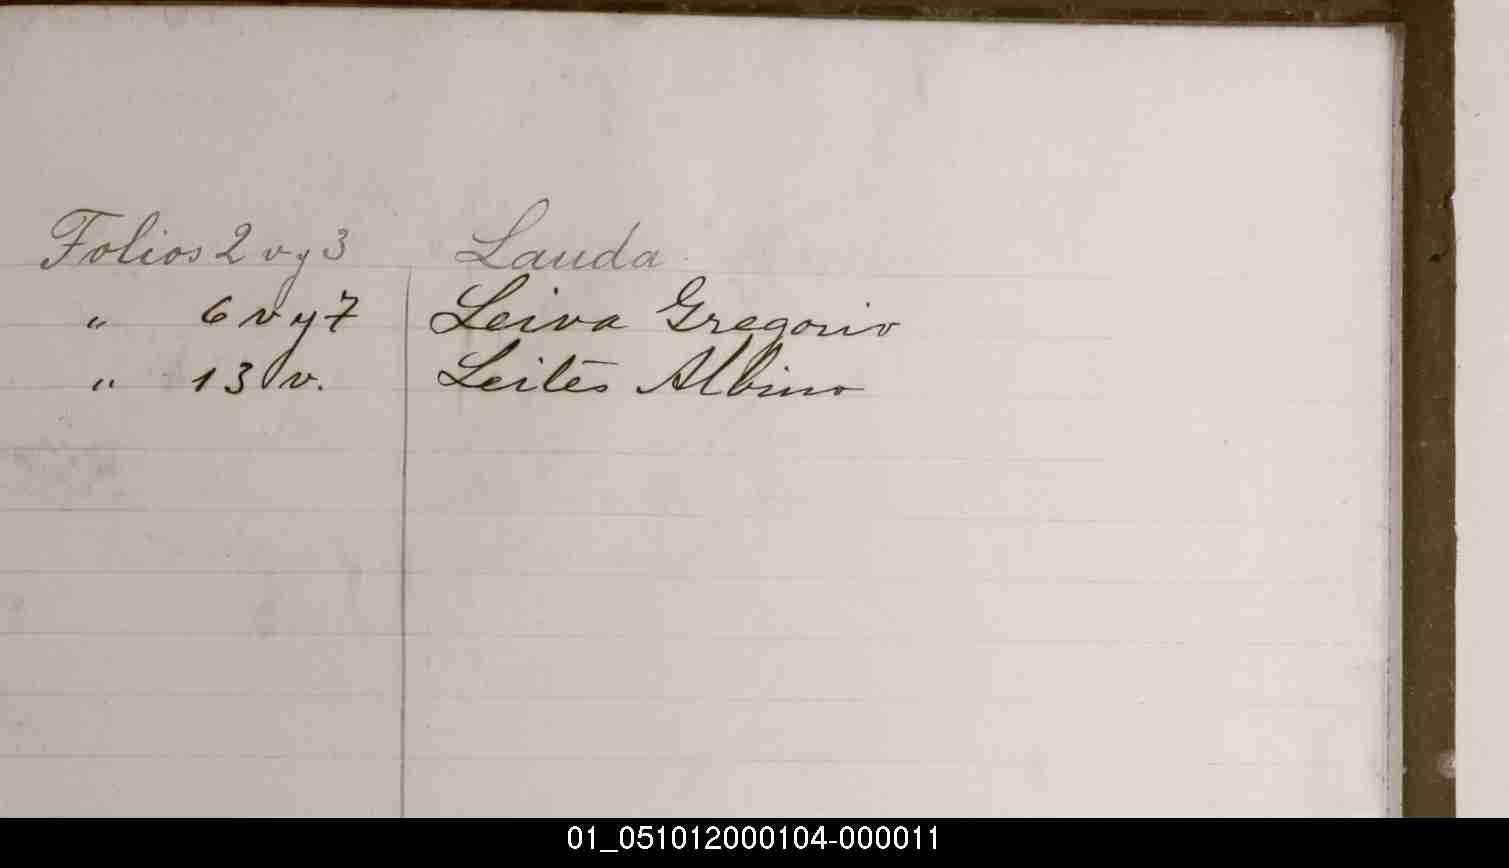 Folios 2 v y 3 Lauda
" 6 v y 7 Leiva Gregorio
" 13 v. Leites Albino
01_051012000104-000011